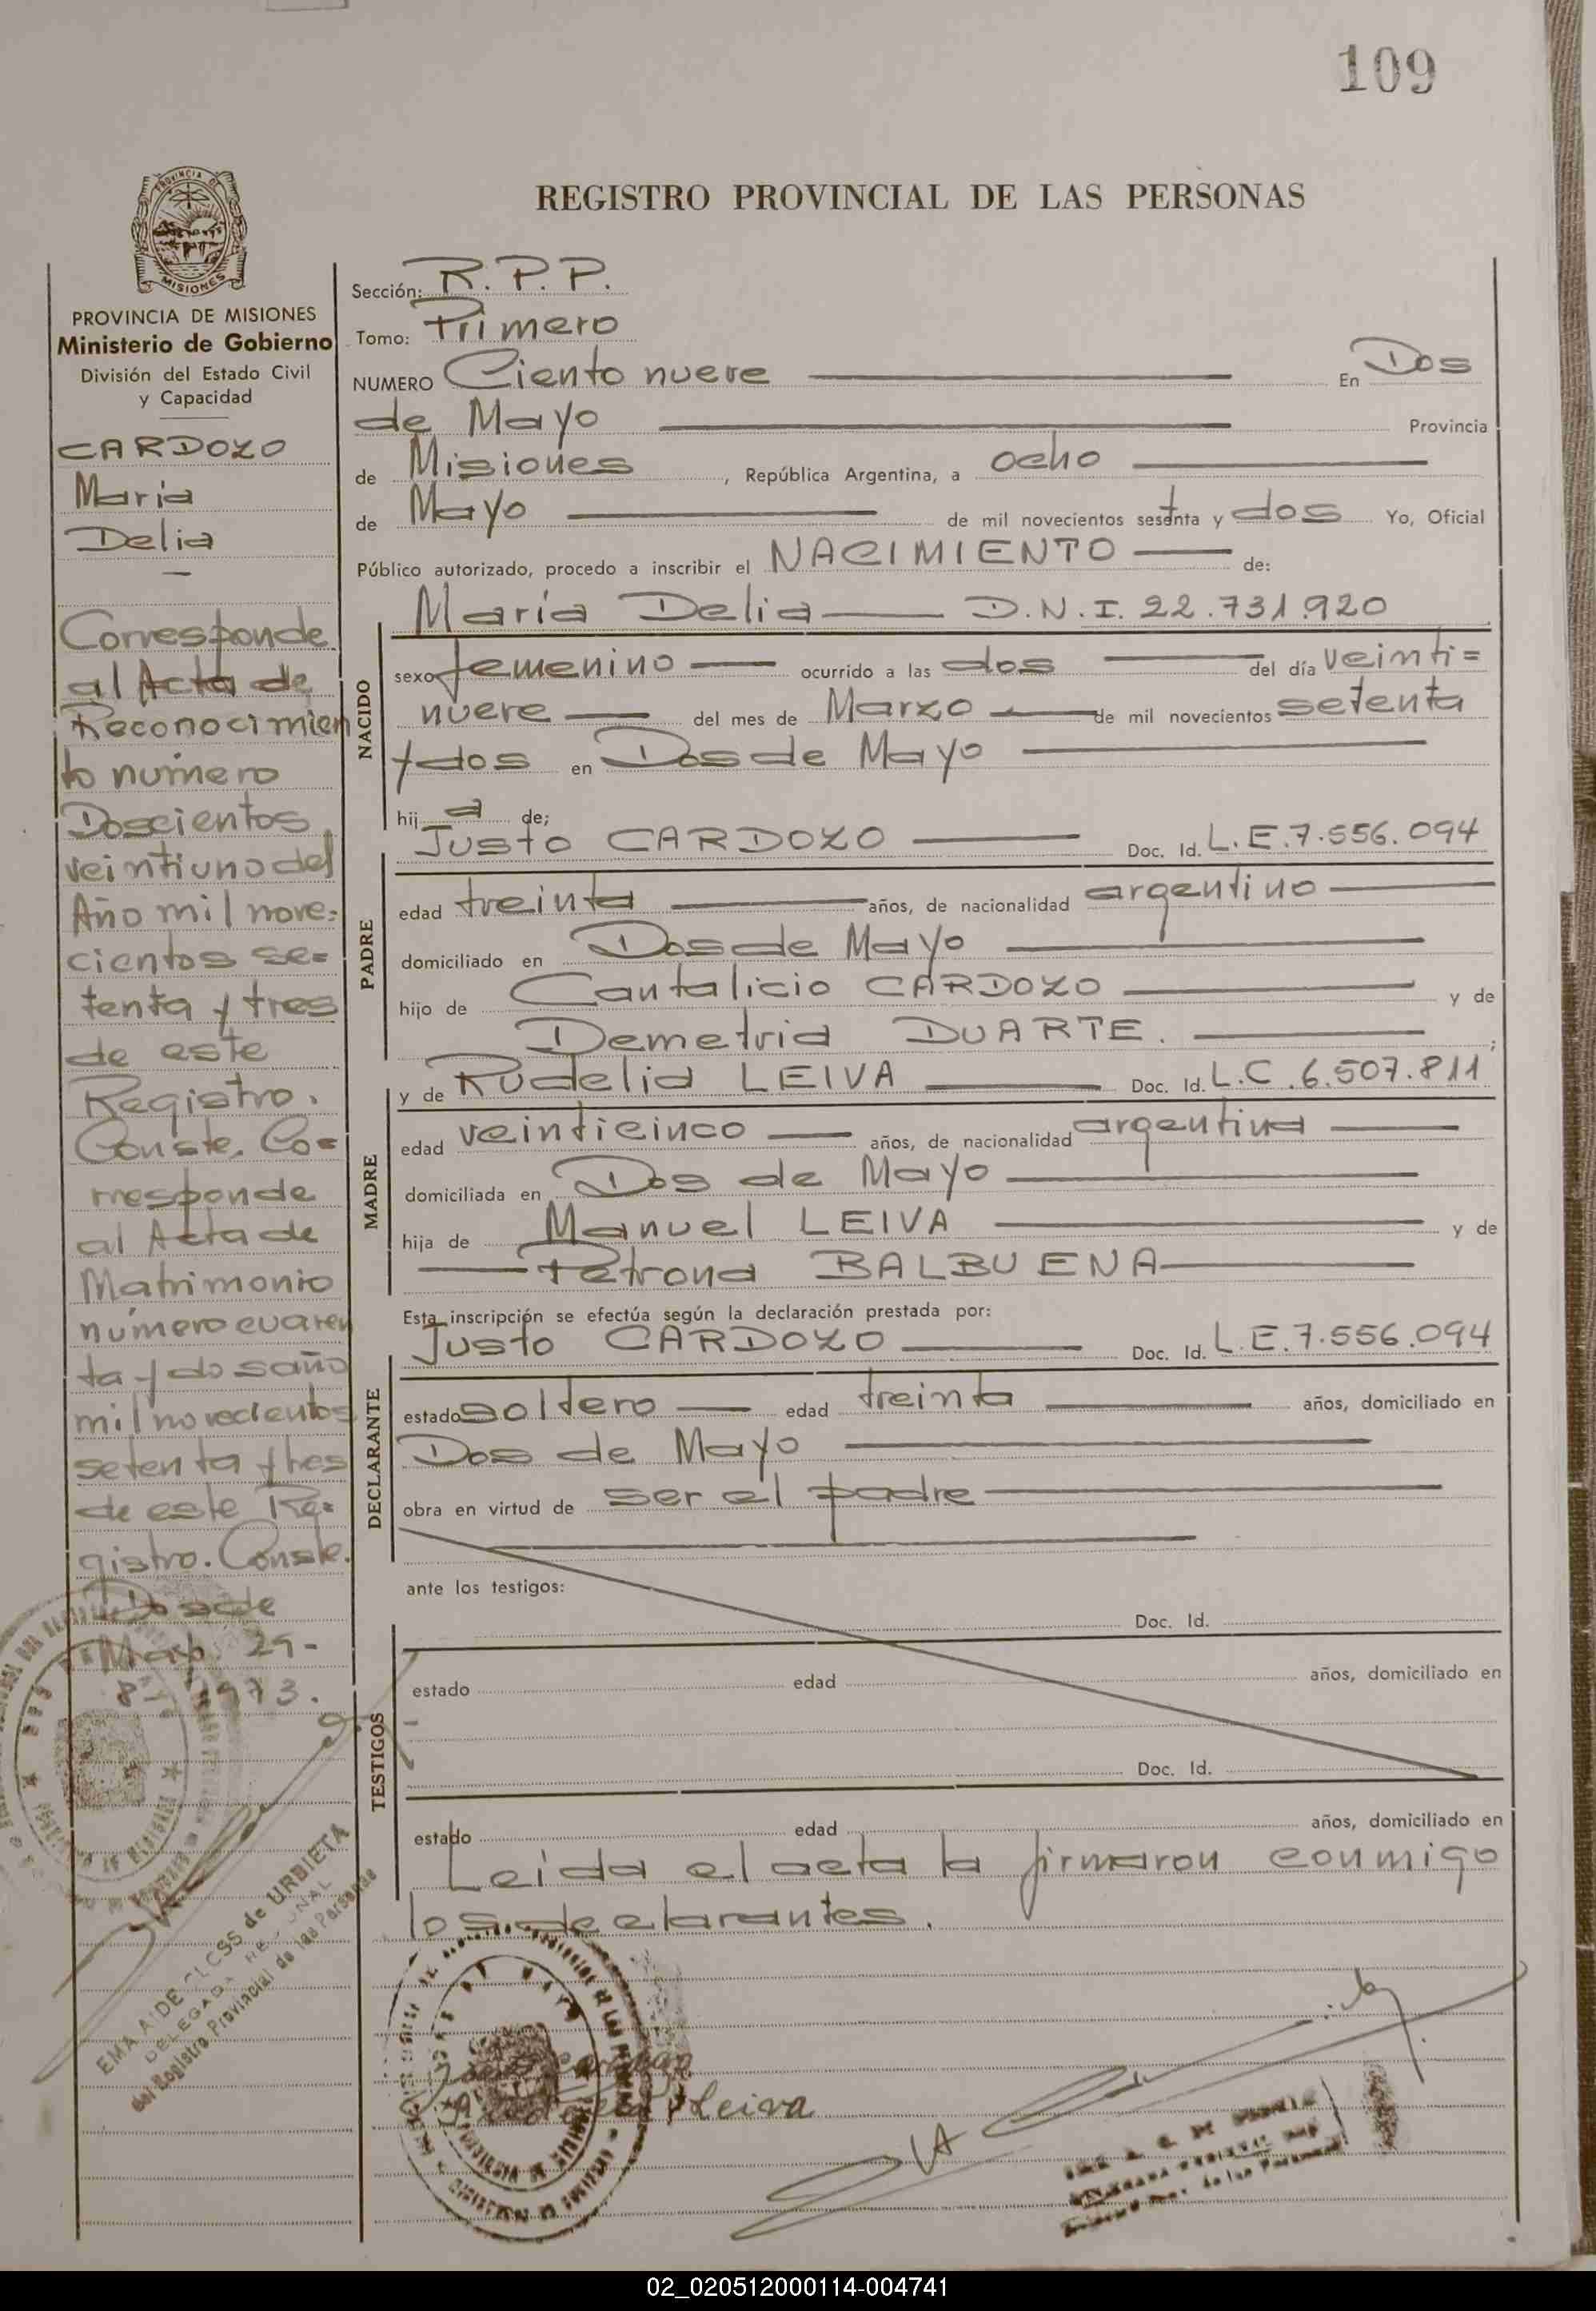 109
PROVINCIA DE
MISIONES
REGISTRO PROVINCIAL DE LAS PERSONAS
PROVINCIA DE MISIONES
Ministerio de Gobierno
División del Estado Civil
y Capacidad
CARDOZO
Maria
Delia
Corresponde
al Acta de
Reconocimien
to numero
Doscientos
veintiuno del
Año mil nove=
cientos se=
tenta y tres
de este
Registro.
Conste. Co=
rresponde
al Acta de
Matrimonio
número cuaren
ta y dos año
mil novecientos
setenta y tres
de este Re=
gistro. Conste.
Dos de
Mayo. 29-
8-1973.
EMA AIDE CLOSS de URBIETA
DELEGADA REGIONAL
del Registro Provincial de las Personas
Sección: R.P.P.
Tomo: Primero
NUMERO Ciento nueve En Dos
de Mayo Provincia
de Misiones, República Argentina, a ocho
de Mayo de mil novecientos setenta y dos Yo, Oficial
Público autorizado, procedo a inscribir el NACIMIENTO de:
María Delia D.N.I. 22.731.920
NACIDO
sexo femenino ocurrido a las dos del día veinti=
nueve del mes de Marzo de mil novecientos setenta
y dos en Dos de Mayo
hij a de;
Justo CARDOZO Doc. Id. L.E.7.556.094
PADRE
edad treinta años, de nacionalidad argentino
domiciliado en Dos de Mayo
hijo de Cantalicio CARDOZO y de
Demetria DUARTE. ;
y de Rudelia LEIVA Doc. Id. L.C.6.507.811
MADRE
edad veinticinco años, de nacionalidad argentina
domiciliada en Dos de Mayo
hija de Manuel LEIVA y de
Petrona BALBUENA
Esta inscripción se efectúa según la declaración prestada por:
Justo CARDOZO Doc. Id. L.E.7.556.094
DECLARANTE
estado soltero edad treinta años, domiciliado en
Dos de Mayo
obra en virtud de ser el padre
ante los testigos:
Doc. Id.
TESTIGOS
estado edad años, domiciliado en
Doc. Id.
estado edad años, domiciliado en
Leida el acta la firmaron conmigo
los declarantes.
Leiva
de las Personas
02_020512000114-004741